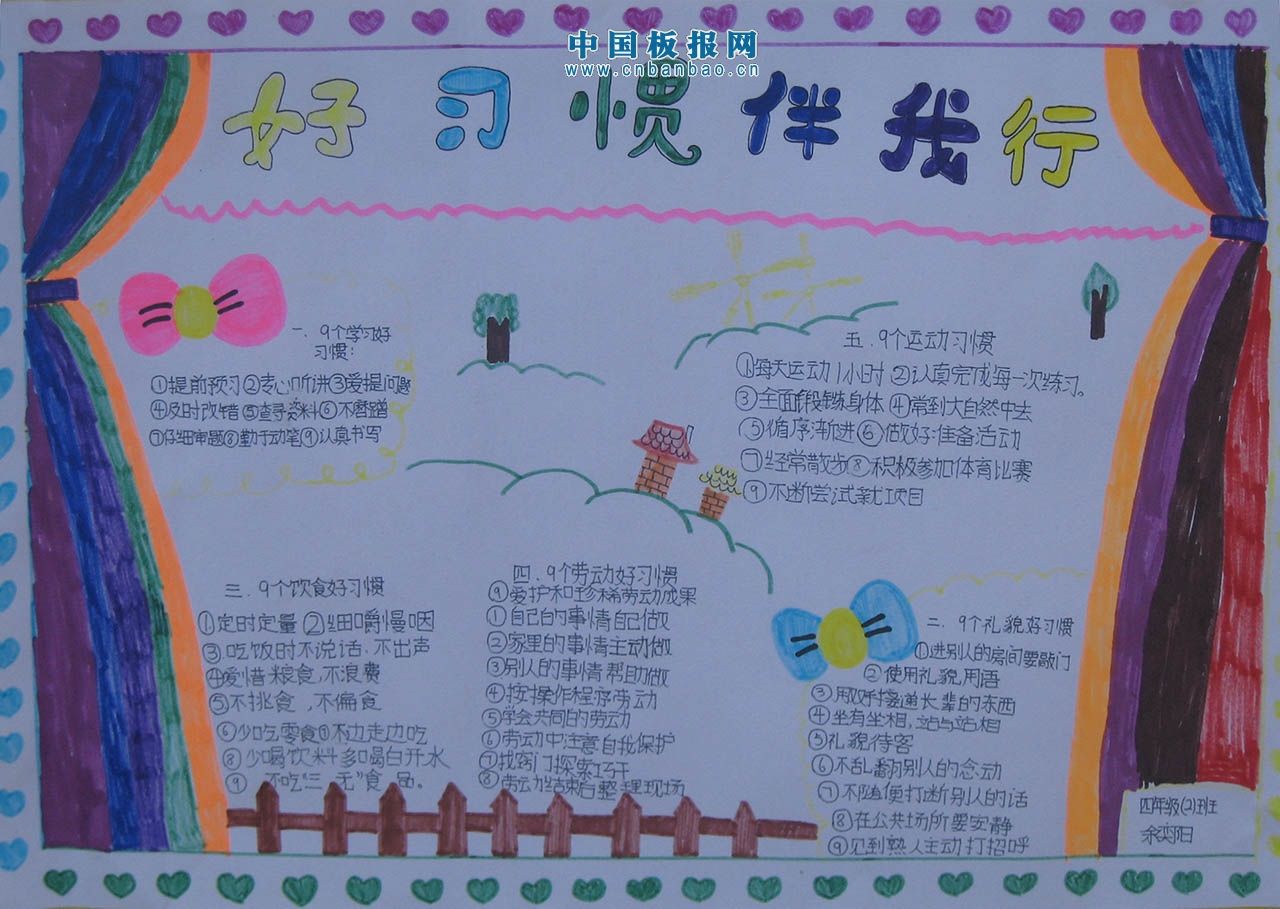 中国板报网
www.cnbanbao.cn
好习惯伴我行
一、9个学习好
习惯:
①提前预习②专心听讲③爱提问题
④及时改错⑤查寻资料⑥不磨蹭
⑦仔细审题⑧勤于动笔⑨认真书写
五、9个运动习惯
①每天运动1小时 ②认真完成每一次练习。
③全面锻练身体 ④常到大自然中去
⑤循序渐进⑥做好准备活动
⑦经常散步⑧积极参加体育比赛
⑨不断尝试新项目
三、9个饮食好习惯
①定时定量 ②细嚼慢咽
③吃饭时不说话、不出声
④爱惜粮食,不浪费
⑤不挑食,不偏食
⑥少吃零食⑦不边走边吃
⑧少喝饮料多喝白开水
⑨不吃“三无”食品。
四、9个劳动好习惯
⑨爱护和珍稀劳动成果
①自己的事情自己做
②家里的事情主动做
③别人的事情帮助做
④按操作程序劳动
⑤学会共同的劳动
⑥劳动中注意自我保护
⑦找窍门探索巧干
⑧劳动结束后整理现场
二、9个礼貌好习惯
①进别人的房间要敲门
②使用礼貌用语
③用双手接递长辈的东西
④坐有坐相,站与站相
⑤礼貌待客
⑥不乱翻别人的
⑦不随便打断别人的话
⑧在公共场所要安静
⑨见到熟人主动打招呼
四年级(2)班
余